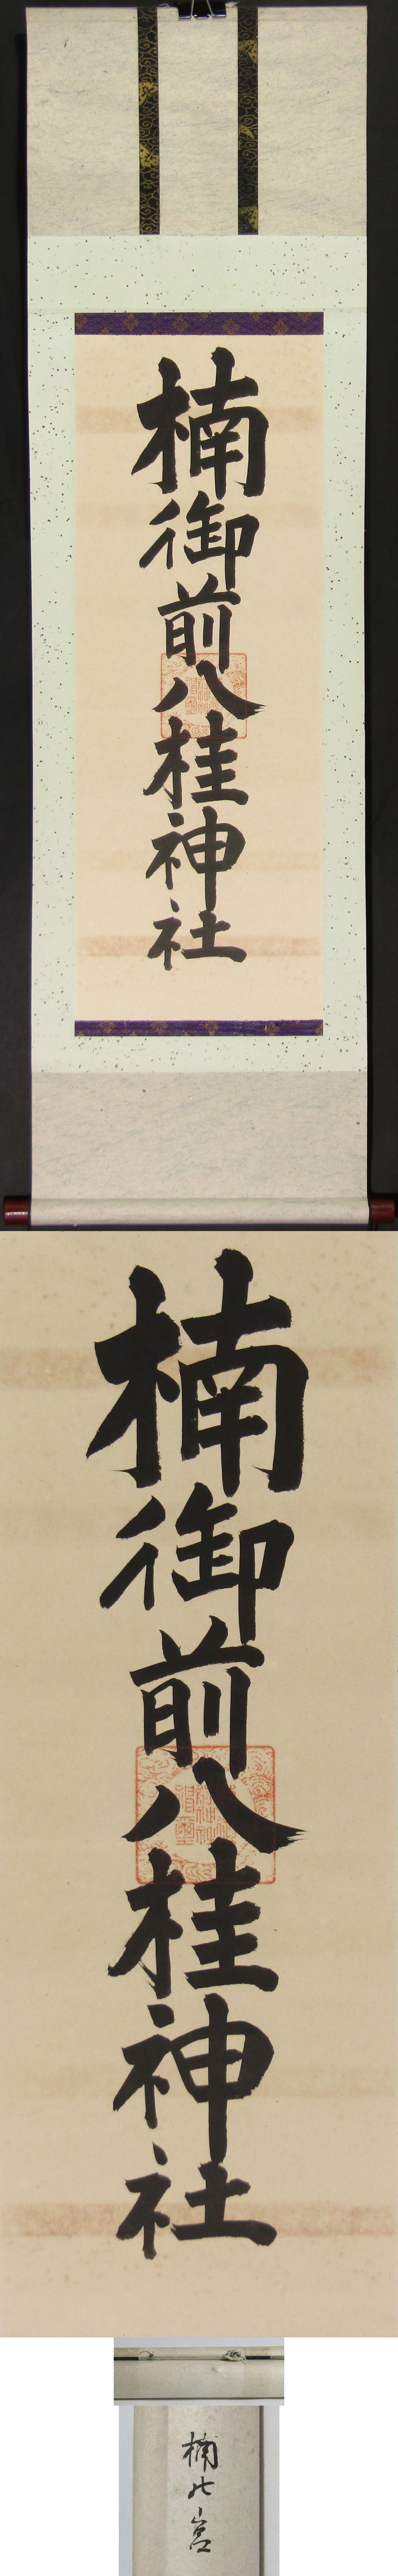 楠御前八桂神社
楠御前八桂神社
楠の宮